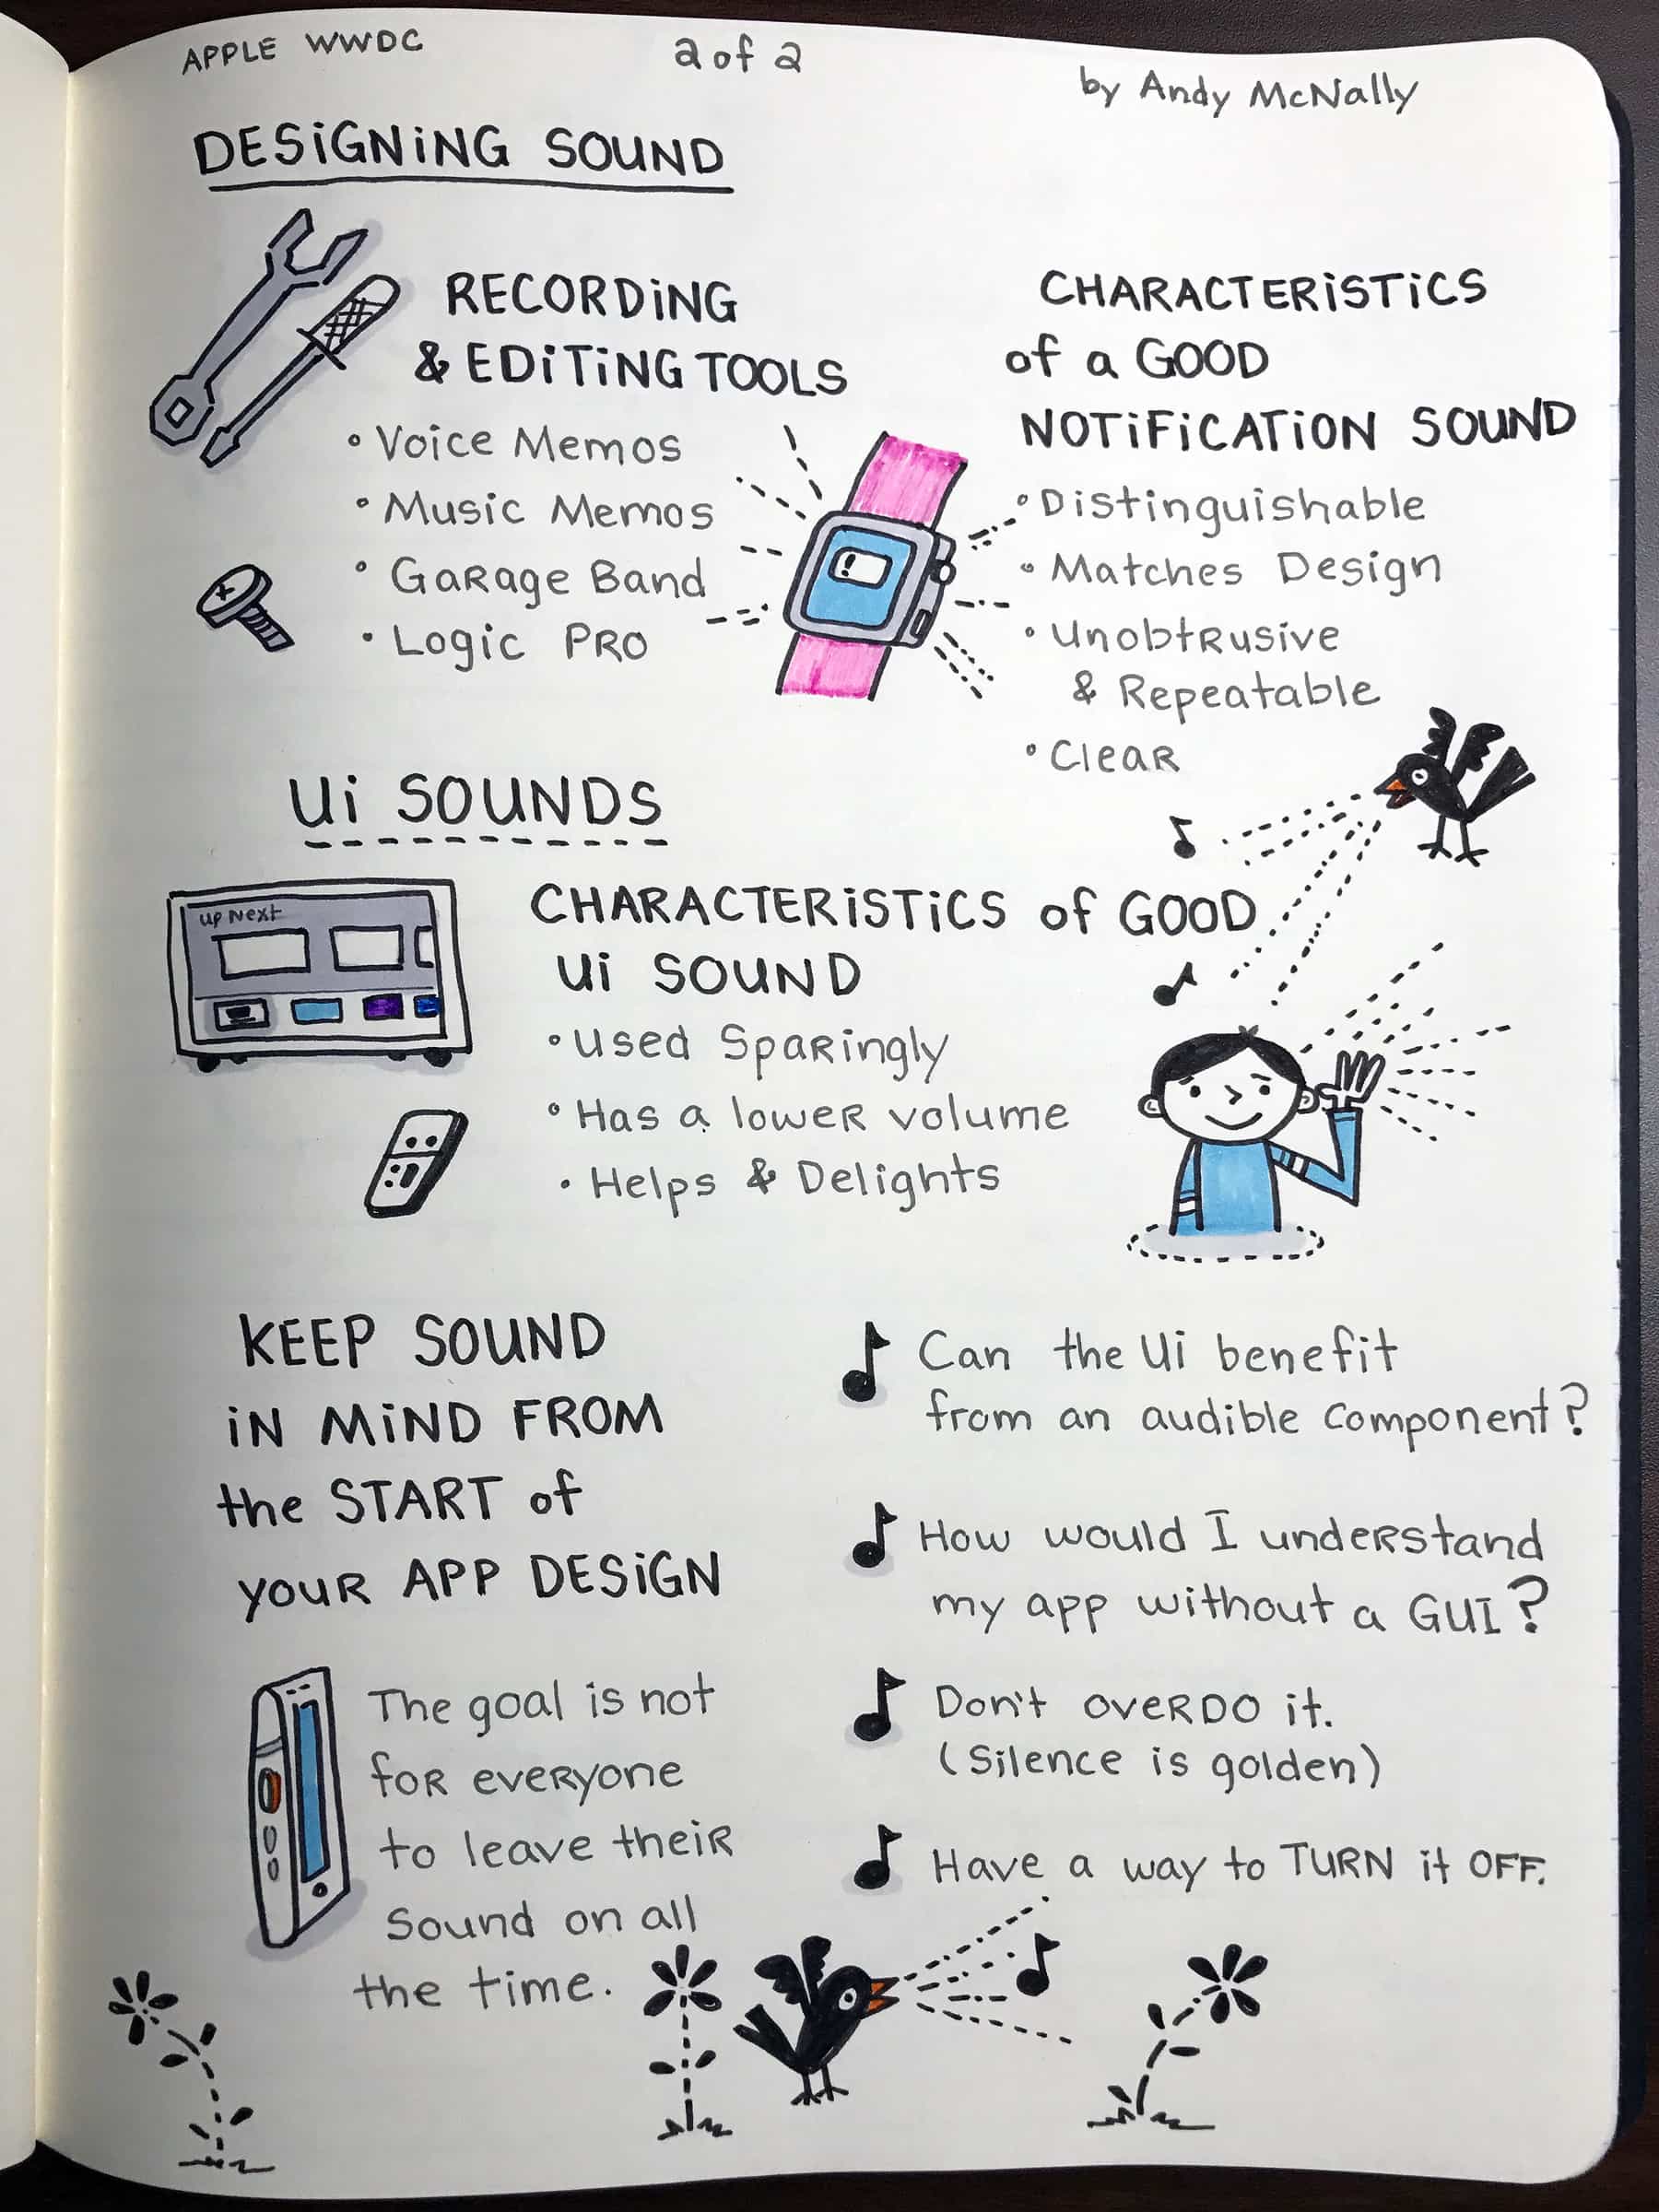 APPLE WWDC
2 of 2
by Andy McNally
DESiGNiNG SOUND
RECORDiNG
& EDiTiNG TOOLS
• Voice Memos
• Music Memos
• GaRage Band
• Logic PRO
CHARACTERiSTiCS
of a GOOD
NOTiFiCATiON SOUND
• Distinguishable
• Matches Design
• UnobtRusive
& Repeatable
• CleaR
!
Ui SOUNDS
up Next
CHARACTERiSTiCS of GOOD
Ui SOUND
• Used SpaRingly
• Has a loweR volume
• Helps & Delights
KEEP SOUND
iN MiND FROM
the START of
youR APP DESiGN
The goal is not
foR eveRyone
to leave theiR
Sound on all
the time.
Can the Ui benefit
from an audible component?
How would I undeRstand
my app without a GUI?
Don't oveRDO it.
(Silence is golden)
Have a way to TURN it OFF.